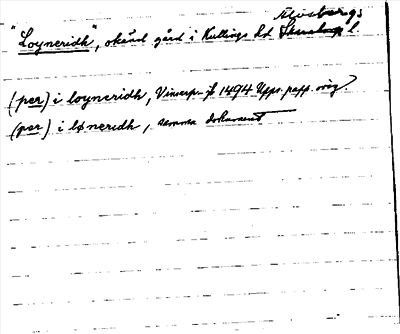 Älvsborgs
"Loyneridh", okänd gård i Kullings hd l.
(per) i loyneridh, Vinserp 1494 Upps. papp. orig.
(per) i løneridh, samma dokument